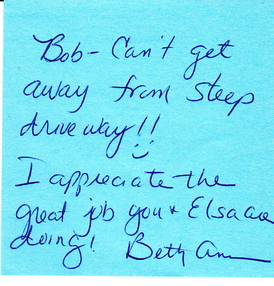 Bob - Can't get
away from steep
driveway!!
I appreciate the
great job you & Elsa are
doing! Beth Ann